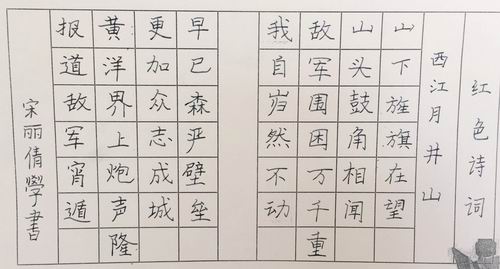 红色诗词
西江月井山
山下旌旗在望
山头鼓角相闻
敌军围困万千重
我自岿然不动
早已森严壁垒
更加众志成城
黄洋界上炮声隆
报道敌军宵遁
宋丽倩学書